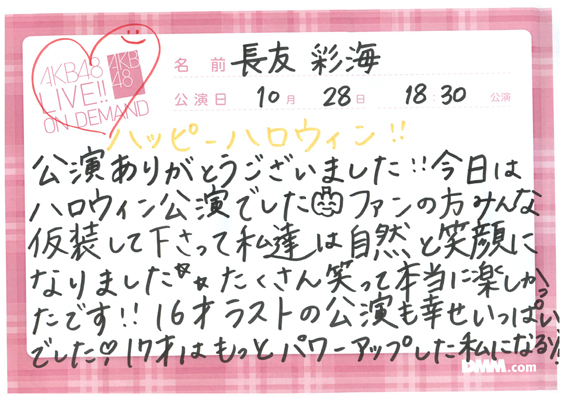 AKB48
LIVE!!
ON DEMAND
AKB
48
名前 長友 彩海
公演日 10月 28日 18:30 公演
ハッピーハロウィン!!
公演ありがとうございました!!今日は
ハロウィン公演でした🎃ファンの方みんな
仮装して下さって私達は自然と笑顔に
なりました☆☆たくさん笑って本当に楽しかっ
たです!!16才ラストの公演も幸せいっぱい
でした♡17才はもっとパワーアップした私になるゾ!
DMM.com